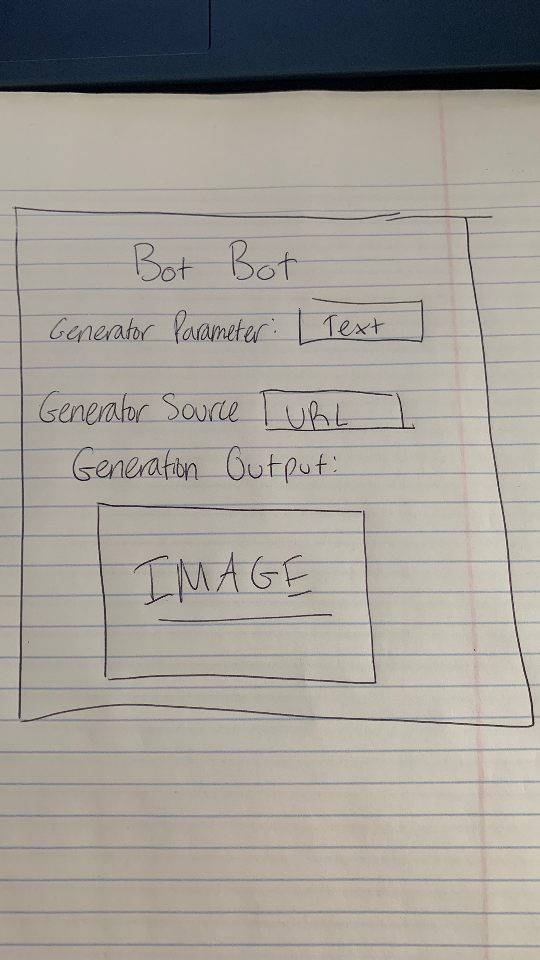 Bot Bot
Generator Parameter: Text
Generator Source URL
Generation Output:
IMAGE